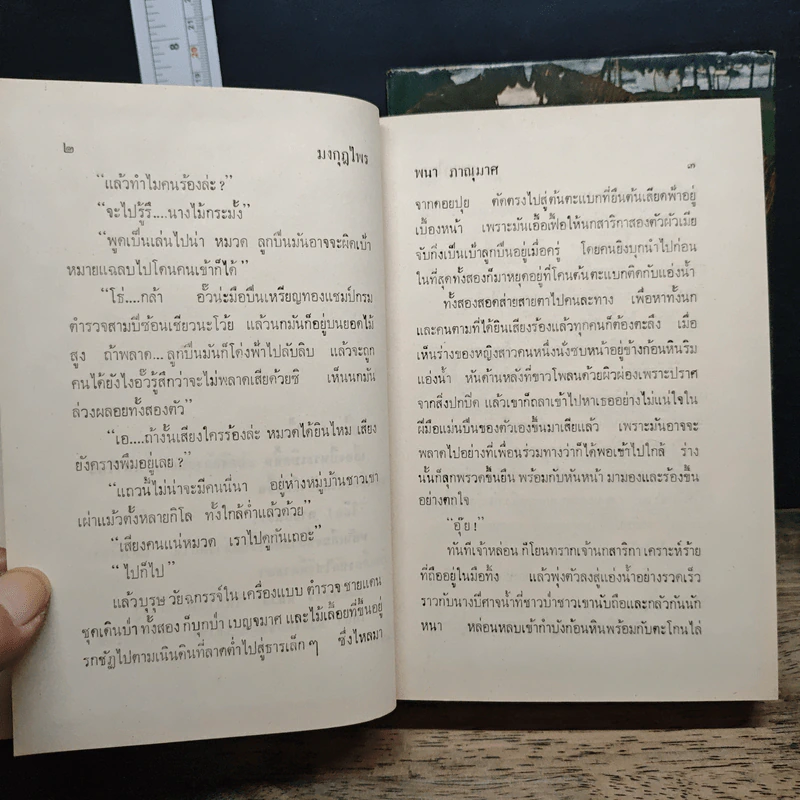 ๒ มงกุฎไพร
“แล้วทำไมคนร้องล่ะ?”
“จะไปรู้รึ....นางไม้กระมั้ง”
“พูดเป็นเล่นไปน่า หมวด ลูกปืนมันอาจจะผิดเป้า
หมายแฉลบไปโดนคนเข้าก็ได้”
“โธ่....กล้า อั๊วน่ะมือปืนเหรียญทองแชมป์กรม
ตำรวจสามปีซ้อนเชียวนะโว้ย แล้วนกมันก็อยู่บนยอดไม้
สูง ถ้าพลาด...ลูกปืนมันก็โด่งฟ้าไปลับลิบ แล้วจะถูก
คนได้ยังไงอั๊วรู้สึกว่าจะไม่พลาดเสียด้วยซิ เห็นนกมัน
ล่วงผลอยทั้งสองตัว”
“เอ....ถ้างั้นเสียงใครร้องล่ะ หมวดได้ยินไหม เสียง
ยังครางพึมอยู่เลย?”
“แถวนี้ไม่น่าจะมีคนนี่นา อยู่ห่างหมู่บ้านชาวเขา
เผ่าแม้วตั้งหลายกิโล ทั้งใกล้ค่ำแล้วด้วย”
“เสียงคนแน่หมวด เราไปดูกันเถอะ”
“ไปก็ไป”
แล้วบุรุษ วัยฉกรรจ์ใน เครื่องแบบ ตำรวจ ชายแดน
ชุดเดินป่า ทั้งสอง ก็บุกป่า เบญจมาศ และไม้เลื้อยที่ขึ้นอยู่
รกชัฏไปตามเนินดินที่ลาดต่ำไปสู่ธารเล็ก ๆ ซึ่งไหลมา
พนา ภาณุมาศ ๓
จากดอยปุย ตัดตรงไปสู่ต้นตะแบกที่ยืนต้นเสียดฟ้าอยู่
เบื้องหน้า เพราะมันเอื้อเฟื้อให้นกสาริกาสองตัวผัวเมีย
จับกิ่งเป็นเป้าลูกปืนอยู่เมื่อครู่ โดยคนยิงบุกนำไปก่อน
ในที่สุดทั้งสองก็มาหยุดอยู่ที่โคนต้นตะแบกติดกับแอ่งน้ำ
ทั้งสองสอดส่ายสายตาไปคนละทาง เพื่อหาทั้งนก
และคนตามที่ได้ยินเสียงร้องแล้วทุกคนก็ต้องตะลึง เมื่อ
เห็นร่างของหญิงสาวคนหนึ่งนั่งซบหน้าอยู่ข้างก้อนหินริม
แอ่งน้ำ หันด้านหลังที่ขาวโพลนด้วยผิวผ่องเพราะปราศ
จากสิ่งปกปิด แล้วเขาก็ถลาเข้าไปหาเธออย่างไม่แน่ใจใน
ฝีมือแม่นปืนของตัวเองขึ้นมาเสียแล้ว เพราะมันอาจจะ
พลาดไปอย่างที่เพื่อนร่วมทางว่าก็ได้พอเข้าไปใกล้ ร่าง
นั้นก็ลุกพรวดขึ้นยืน พร้อมกับหันหน้า มามองและร้องขึ้น
อย่างตกใจ
“อุ๊ย!”
ทันทีเจ้าหล่อน ก็โยนทรากเจ้านกสาริกา เคราะห์ร้าย
ที่ถืออยู่ในมือทิ้ง แล้วพุ่งตัวลงสู่แอ่งน้ำอย่างรวดเร็ว
ราวกับนางปีศาจน้ำที่ชาวป่าชาวเขานับถือและกลัวกันนัก
หนา หล่อนหลบเข้ากำบังก้อนหินพร้อมกับตะโกนไล่